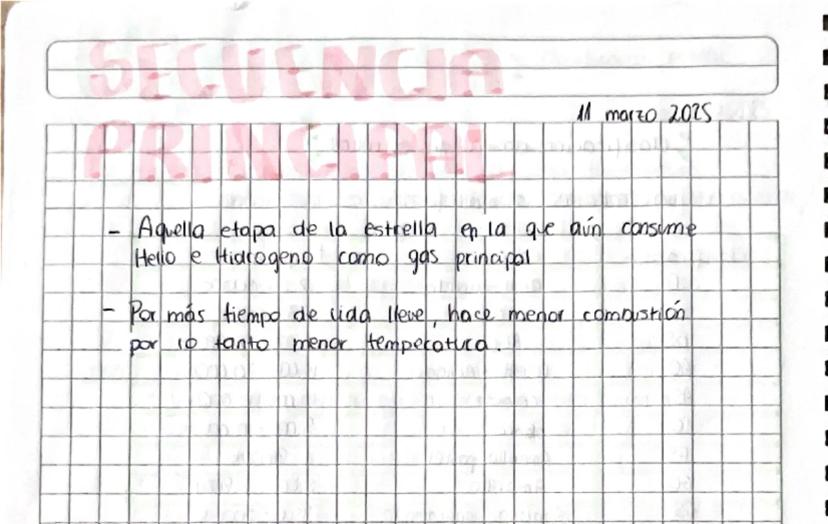 SECUENCIA
11 marzo 2025
PRINCIPAL
- Aquella etapa de la estrella en la que aún consume
Helio e Hidrogeno como gas principal
- Por más tiempo de vida lleve, hace menor combustión
por lo tanto menor temperatura.